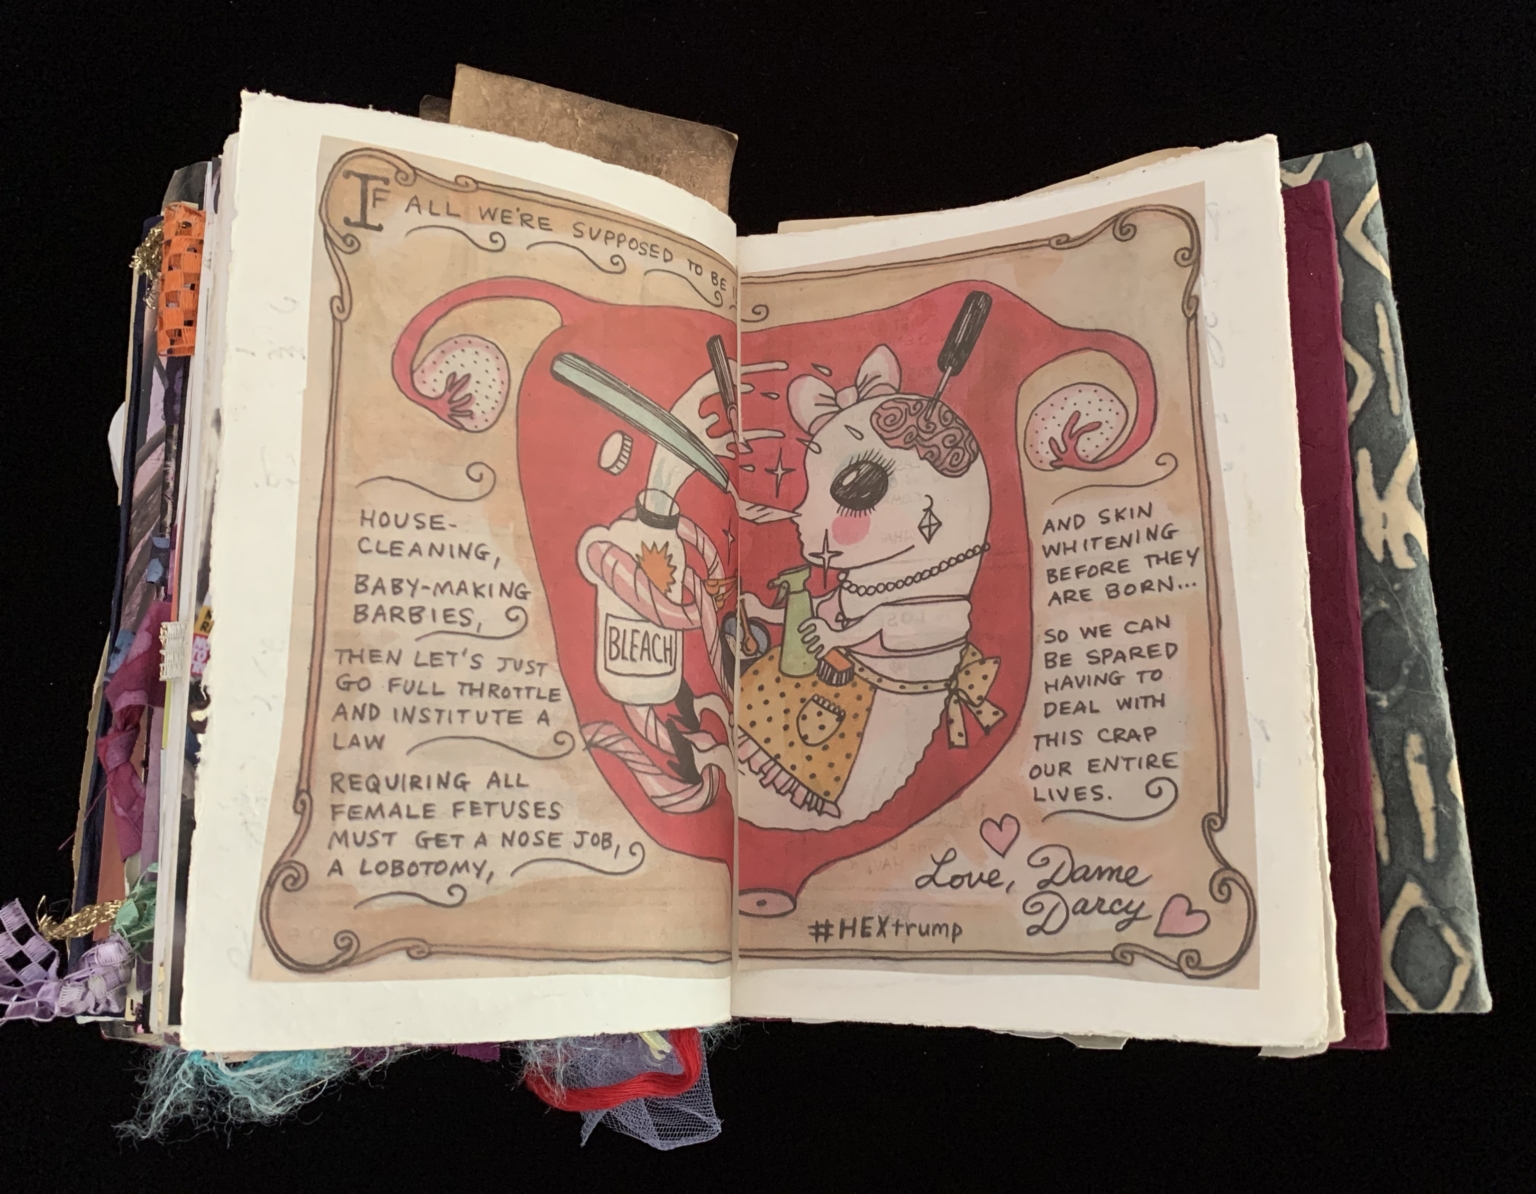 IF ALL WE'RE SUPPOSED TO BE
HOUSE-
CLEANING,
BABY-MAKING
BARBIES,
THEN LET'S JUST
GO FULL THROTTLE
AND INSTITUTE A
LAW
REQUIRING ALL
FEMALE FETUSES
MUST GET A NOSE JOB,
A LOBOTOMY,
BLEACH
AND SKIN
WHITENING
BEFORE THEY
ARE BORN...
SO WE CAN
BE SPARED
HAVING TO
DEAL WITH
THIS CRAP
OUR ENTIRE
LIVES.
Love, Dame
Darcy
#HEXtrump